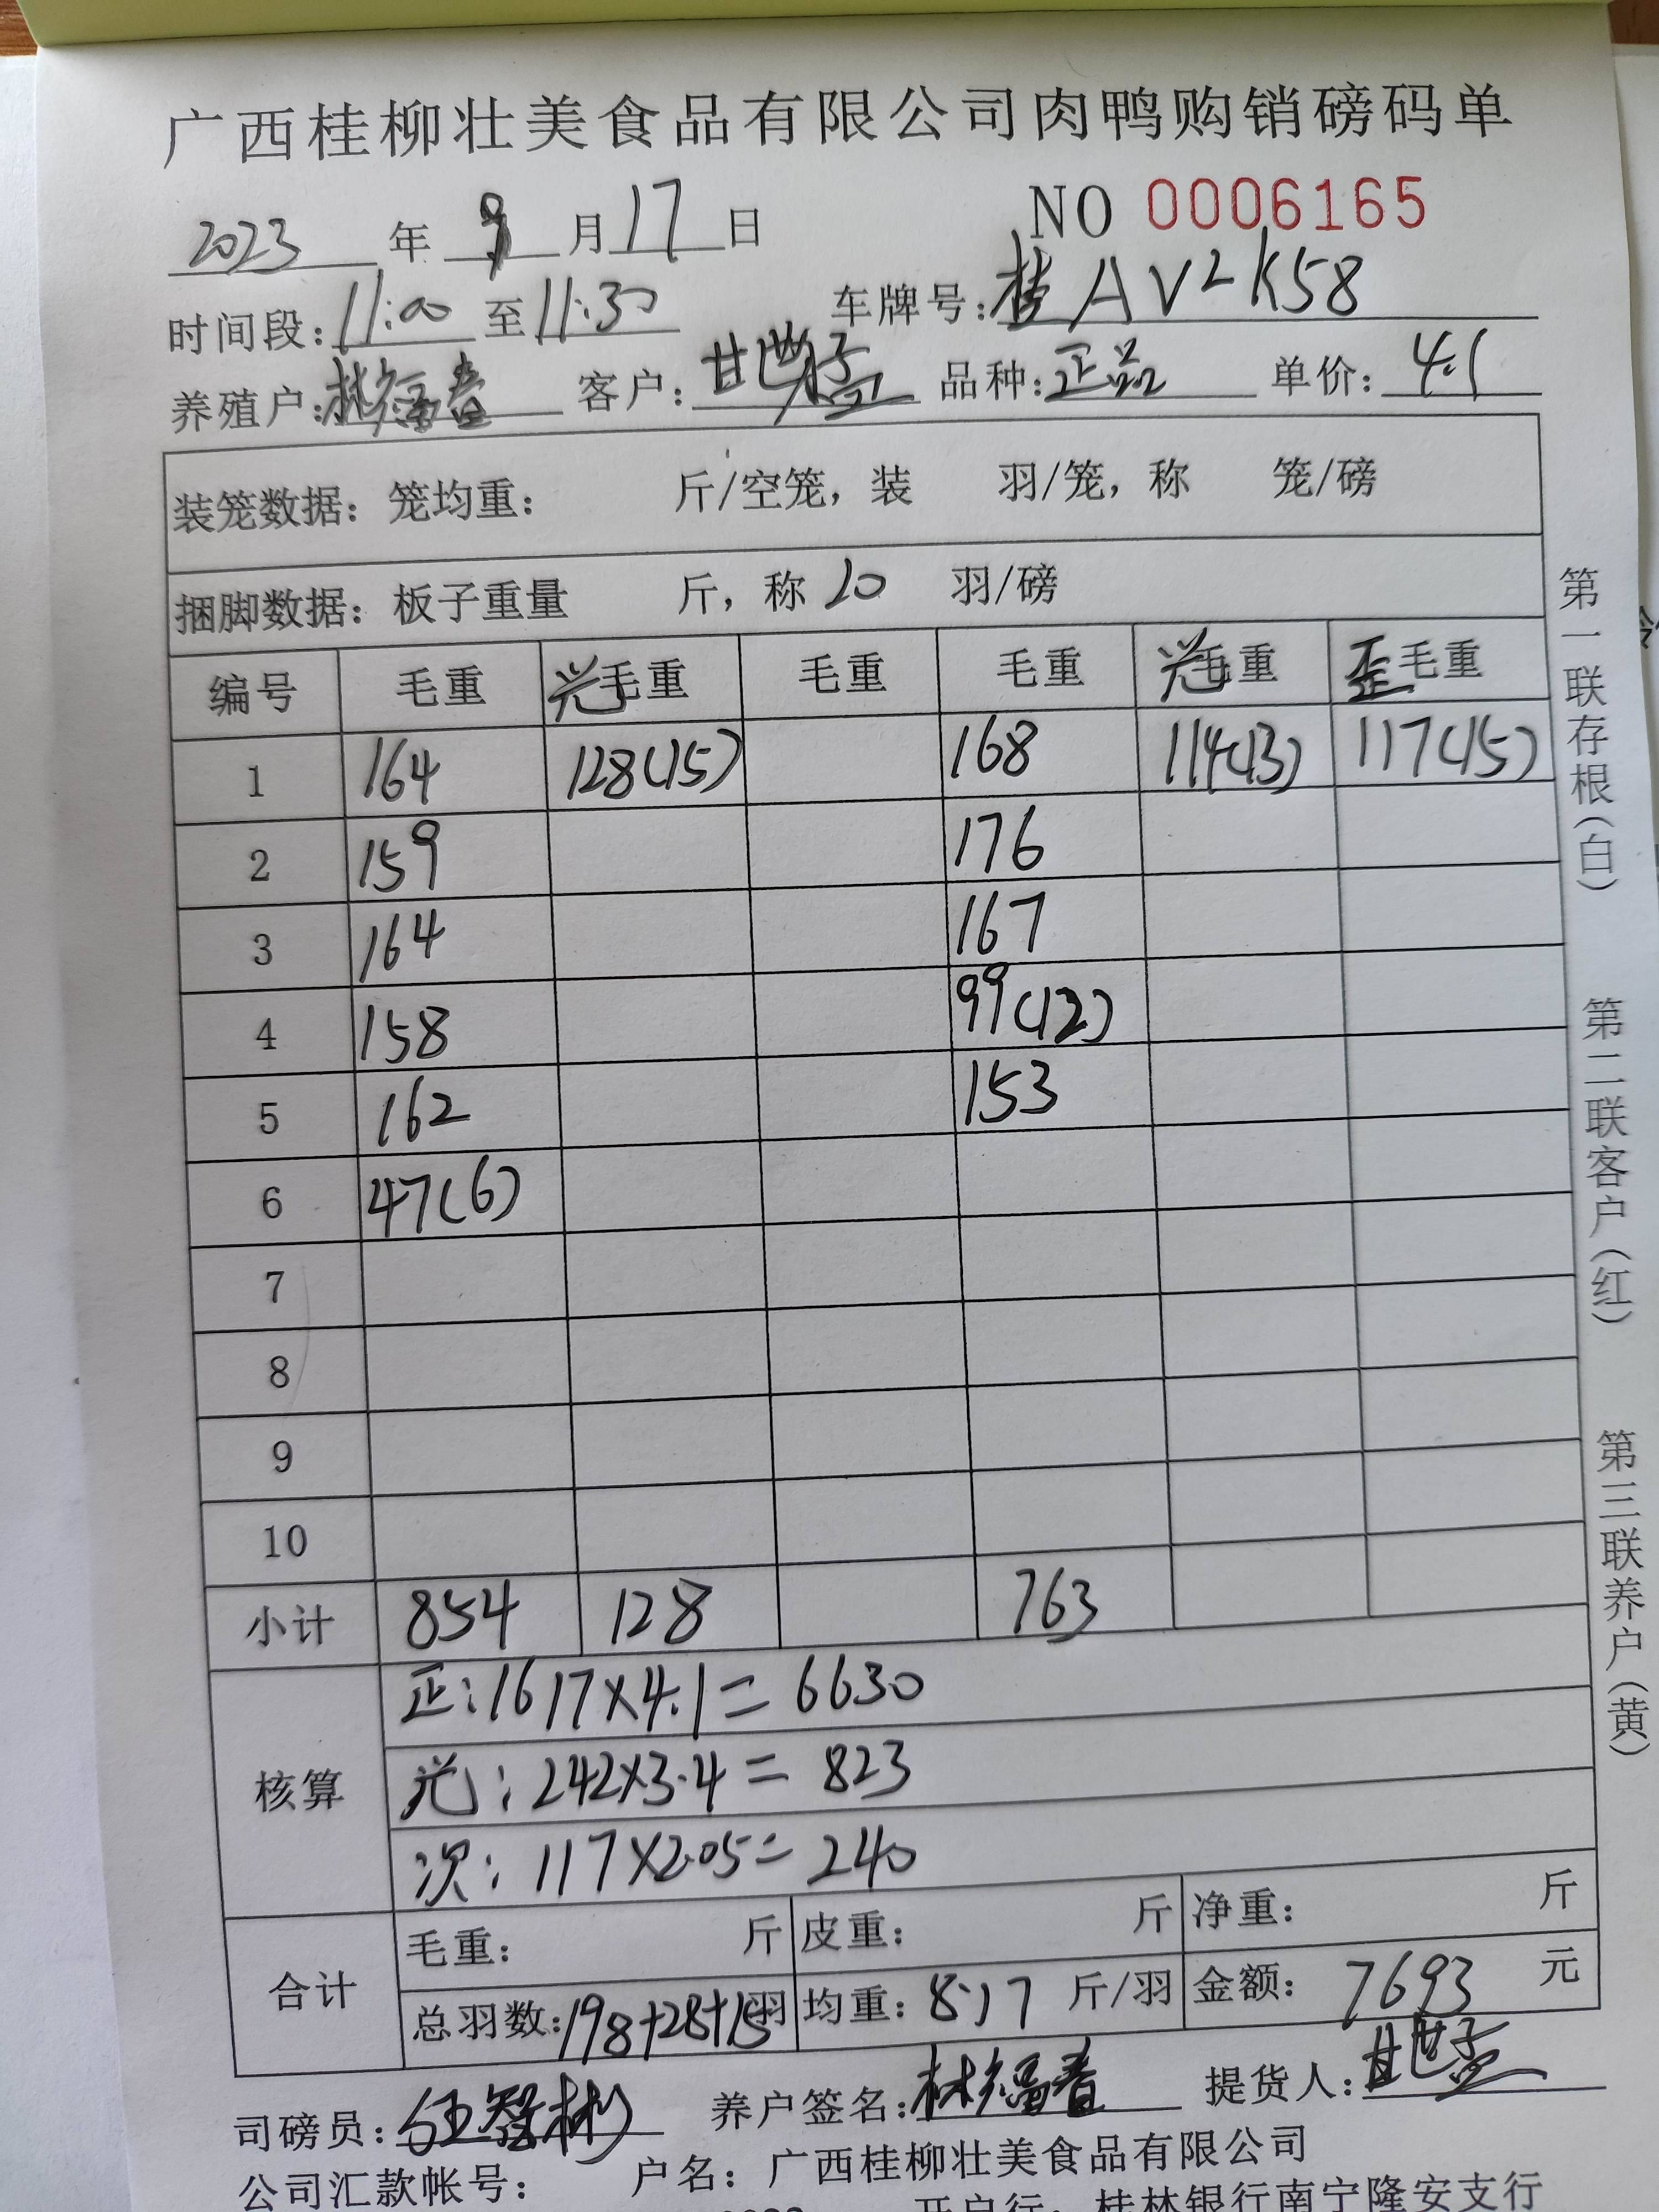 广西桂柳壮美食品有限公司肉鸭购销磅码单
2023 年 9 月 17 日 NO 0006165
时间段: 11:00 至 11:30 车牌号: 桂AV2K58
养殖户: 林福春 客户: 甘世孟 品种: 正品 单价: 4.1
装笼数据: 笼均重: 斤/空笼, 装 羽/笼, 称 笼/磅
捆脚数据: 板子重量 斤, 称 20 羽/磅
编号 毛重 光毛重 毛重 毛重 光毛重 歪毛重
1 164 128(15) 168 114(13) 117(15)
2 159 176
3 164 167
4 158 99(12)
5 162 153
6 47(6)
7
8
9
10
小计 854 128 763
核算 正: 1617×4.1= 6630
光: 242×3.4= 823
次: 117×2.05= 240
合计 毛重: 斤 皮重: 斤 净重: 斤
总羽数: 198+28+15羽 均重: 8.17 斤/羽 金额: 7693 元
司磅员: 养户签名: 林福春 提货人: 甘世孟
公司汇款帐号: 户名: 广西桂柳壮美食品有限公司
开户行: 桂林银行南宁隆安支行
第一联存根(白) 第二联客户(红) 第三联养户(黄)